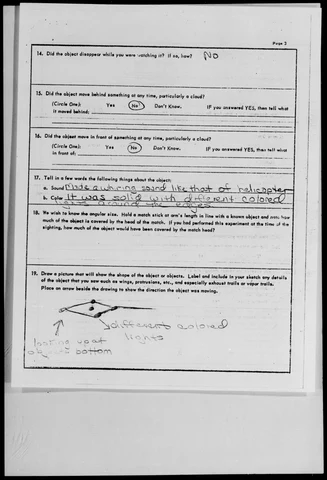 Page 3
14. Did the object disappear while you were watching it? If so, how? NO
15. Did the object move behind something at any time, particularly a cloud?
(Circle One): Yes No Don't Know. IF you answered YES, then tell what
it moved behind:
16. Did the object move in front of something at any time, particularly a cloud?
(Circle One): Yes No Don't Know. IF you answered YES, then tell what
in front of:
17. Tell in a few words the following things about the object:
a. Sound Made a whiring sound like that of helicopter
b. Color It was solid with different colored
lights around the edges
18. We wish to know the angular size. Hold a match stick at arm's length in line with a known object and note how
much of the object is covered by the head of the match. If you had performed this experiment at the time of the
sighting, how much of the object would have been covered by the match head?
19. Draw a picture that will show the shape of the object or objects. Label and include in your sketch any details
of the object that you saw such as wings, protrusions, etc., and especially exhaust trails or vapor trails.
Place an arrow beside the drawing to show the direction the object was moving.
different colored
lights
looking up at
bottom